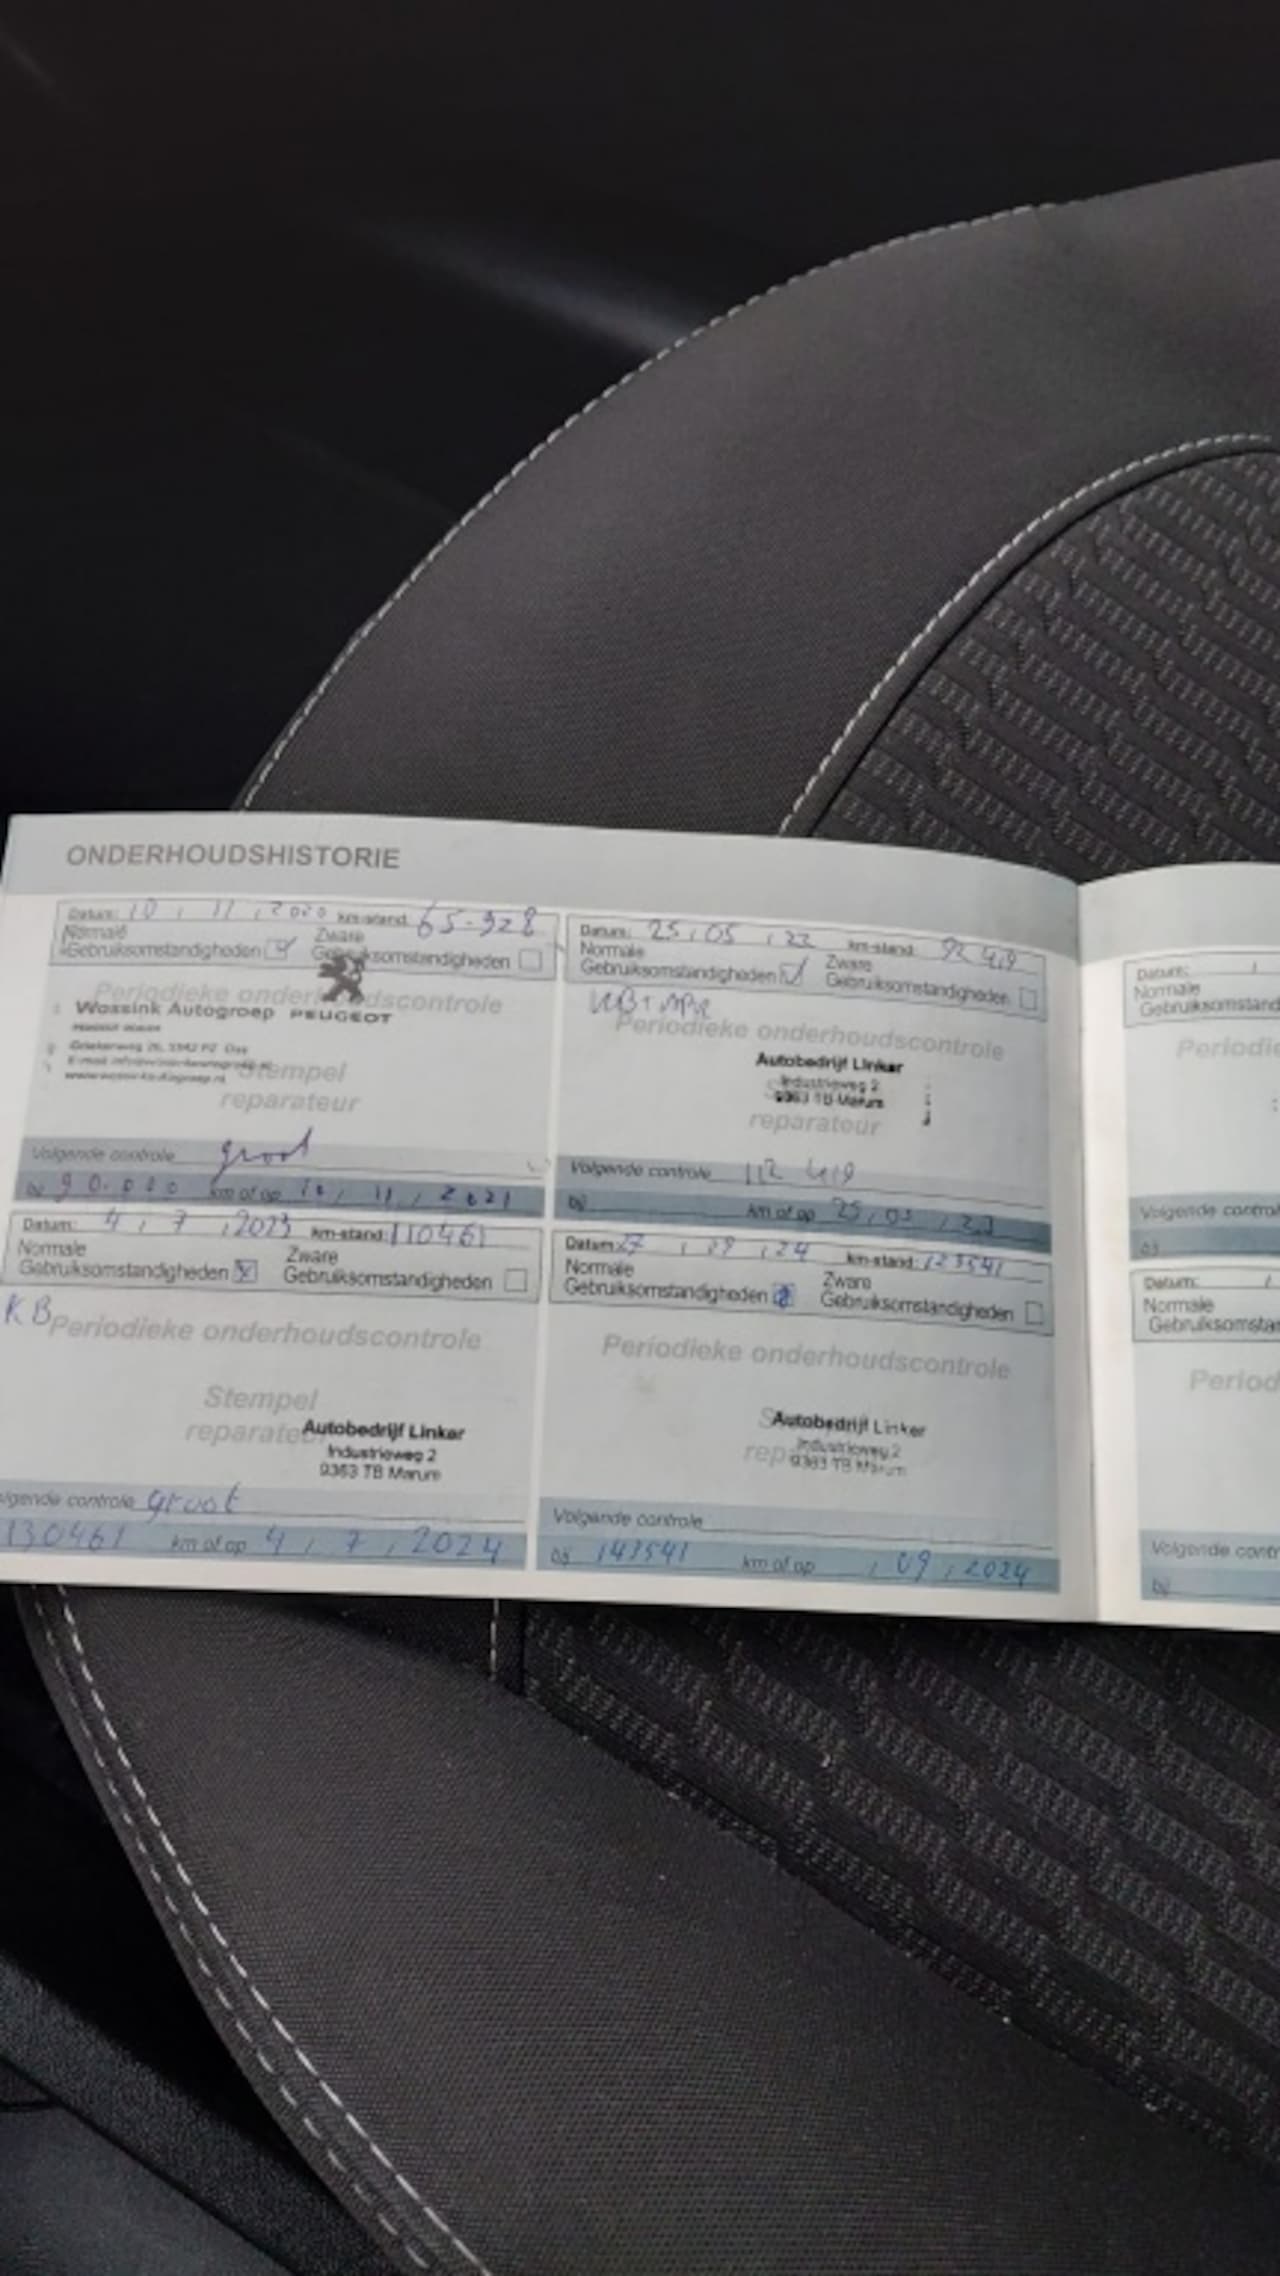 ONDERHOUDSHISTORIE
Datum: 10 , 11 , 2020 km-stand: 65-928
Normale
Gebruiksomstandigheden
Zware
Gebruiksomstandigheden
Periodieke onderhoudscontrole
Wossink Autogroep PEUGEOT
Stempel
reparateur
Volgende controle groot
bij 90.000 km of op 10 , 11 , 2021
Datum: 25 , 05 , 22 km-stand: 92 419
Normale
Gebruiksomstandigheden
Zware
Gebruiksomstandigheden
Periodieke onderhoudscontrole
Autobedrijf Linker
Industrieweg 2
9363 TB Marum
reparateur
Volgende controle 112 419
bij km of op 25 , 05 , 23
Datum: 4 , 7 , 2023 km-stand: 110461
Normale
Gebruiksomstandigheden
Zware
Gebruiksomstandigheden
KB
Periodieke onderhoudscontrole
Stempel
reparateur
Autobedrijf Linker
Industrieweg 2
9363 TB Marum
lgende controle groot
130461 km of op 4 , 7 , 2024
Datum: 27 , , 24 km-stand: 123541
Normale
Gebruiksomstandigheden
Zware
Gebruiksomstandigheden
Periodieke onderhoudscontrole
Autobedrijf Linker
Industrieweg 2
9363 TB Marum
Volgende controle
bij 143541 km of op , 09 , 2024
Datum:
Normale
Gebruiksomstand
Periodie
Volgende control
bij
Datum:
Normale
Gebruiksomstan
Period
Volgende contr
bij